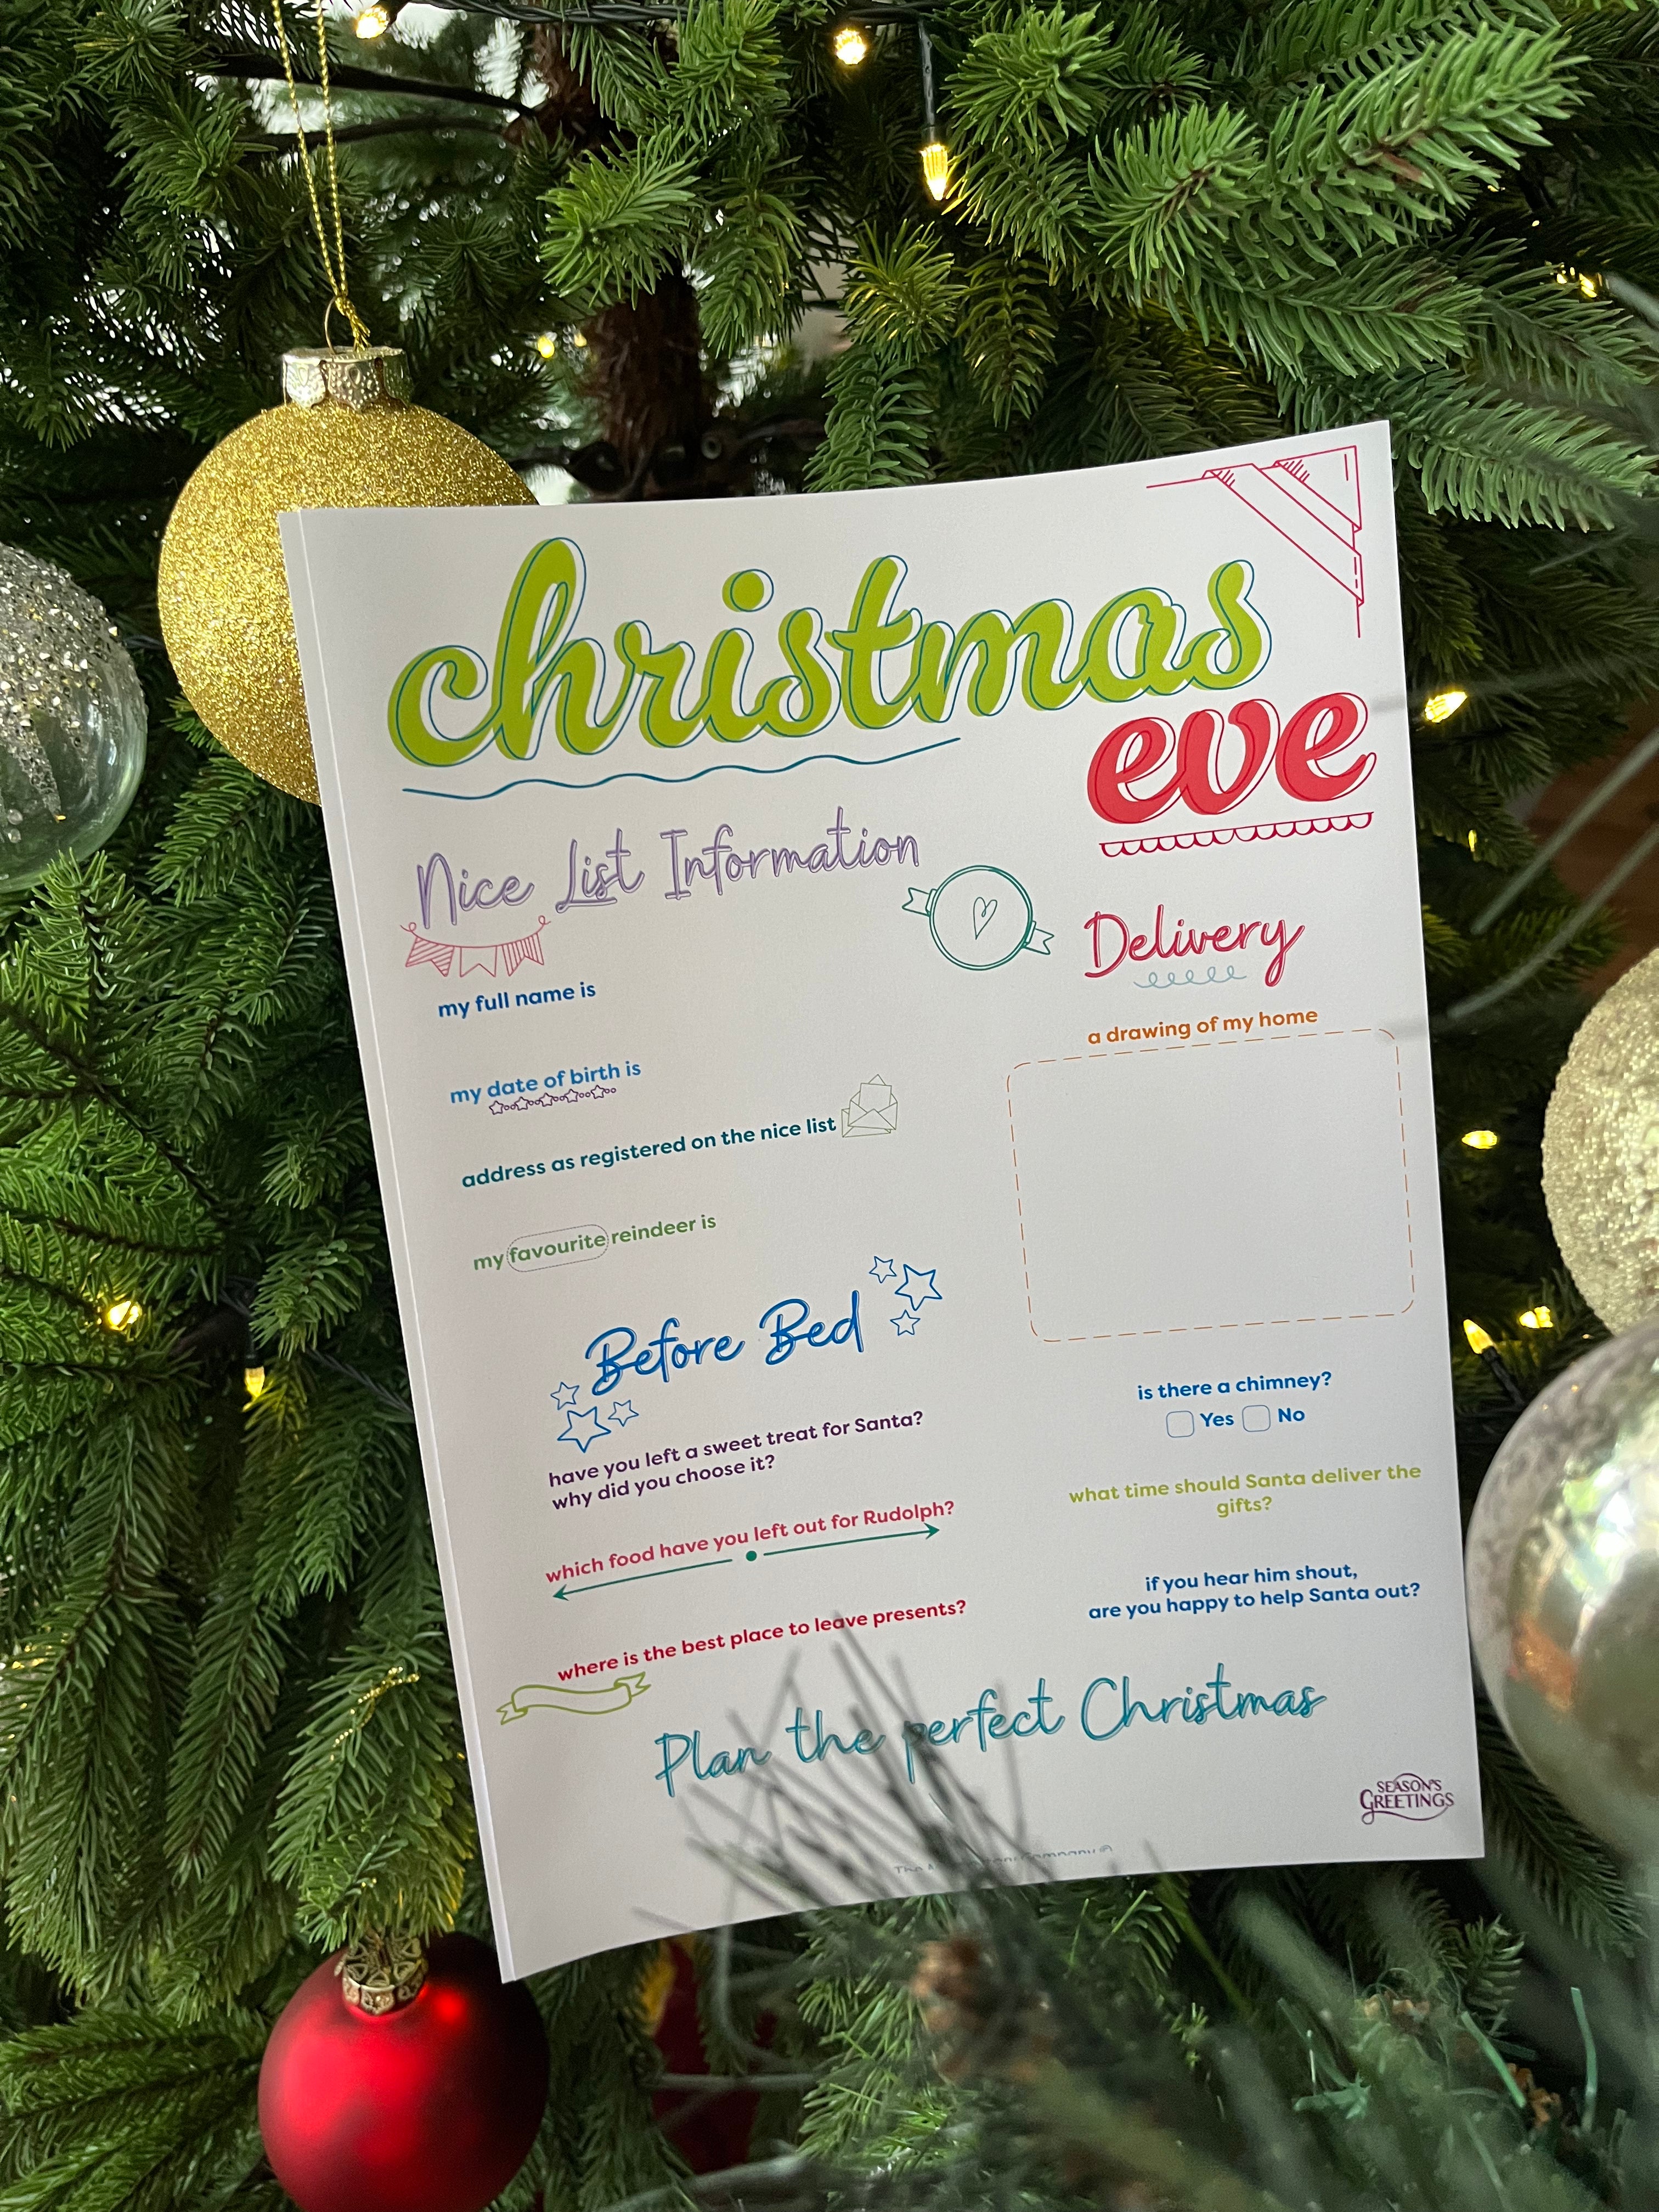 christmas
eve
Nice List Information
my full name is
my date of birth is
address as registered on the nice list
my favourite reindeer is
Before Bed
have you left a sweet treat for Santa?
why did you choose it?
which food have you left out for Rudolph?
where is the best place to leave presents?
Delivery
a drawing of my home
is there a chimney?
Yes No
what time should Santa deliver the
gifts?
if you hear him shout,
are you happy to help Santa out?
Plan the perfect Christmas
SEASON'S
GREETINGS
The Company ©